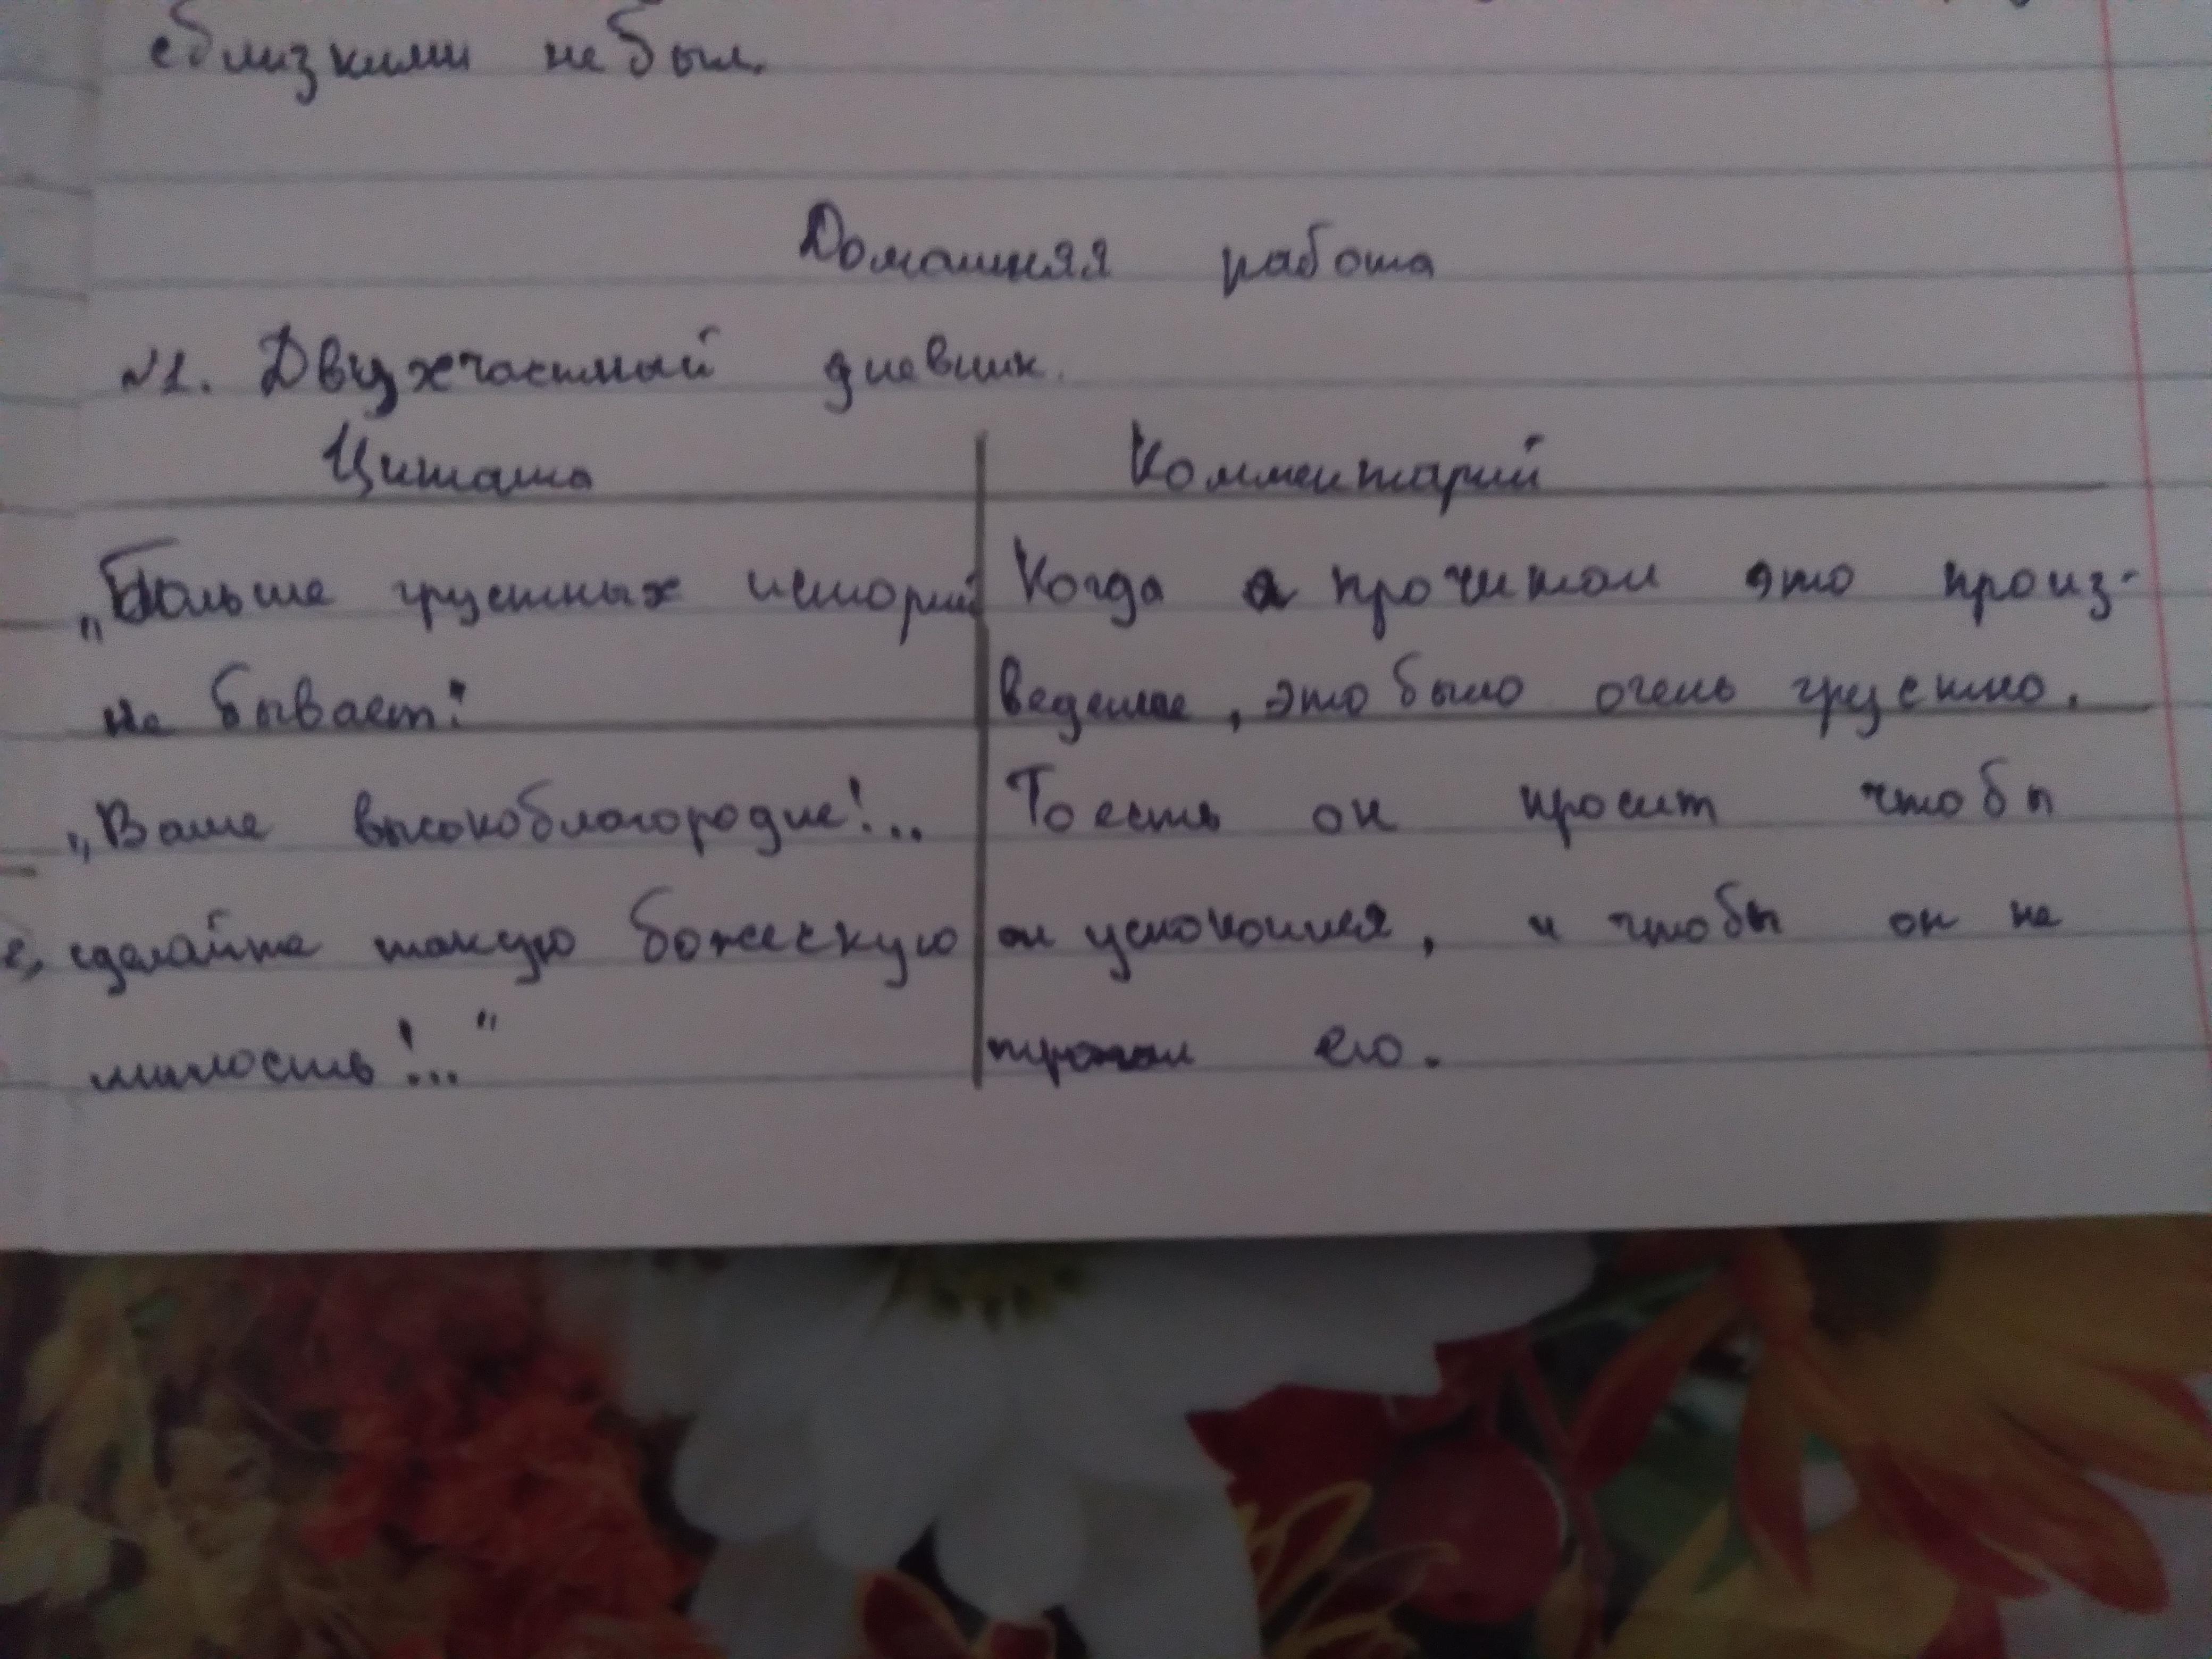 с близкими не был.
Домашняя работа
№1. Двухчастный дневник.
Цитата
Комментарий
„Больше грустных историй
не бывает."
Когда я прочитал это произ-
ведение, это было очень грустно.
„Ваше высокоблагородие!...
сделайте такую божескую
милость!..."
То есть он просит чтобы
он успокоился, и чтобы он не
трогал его.